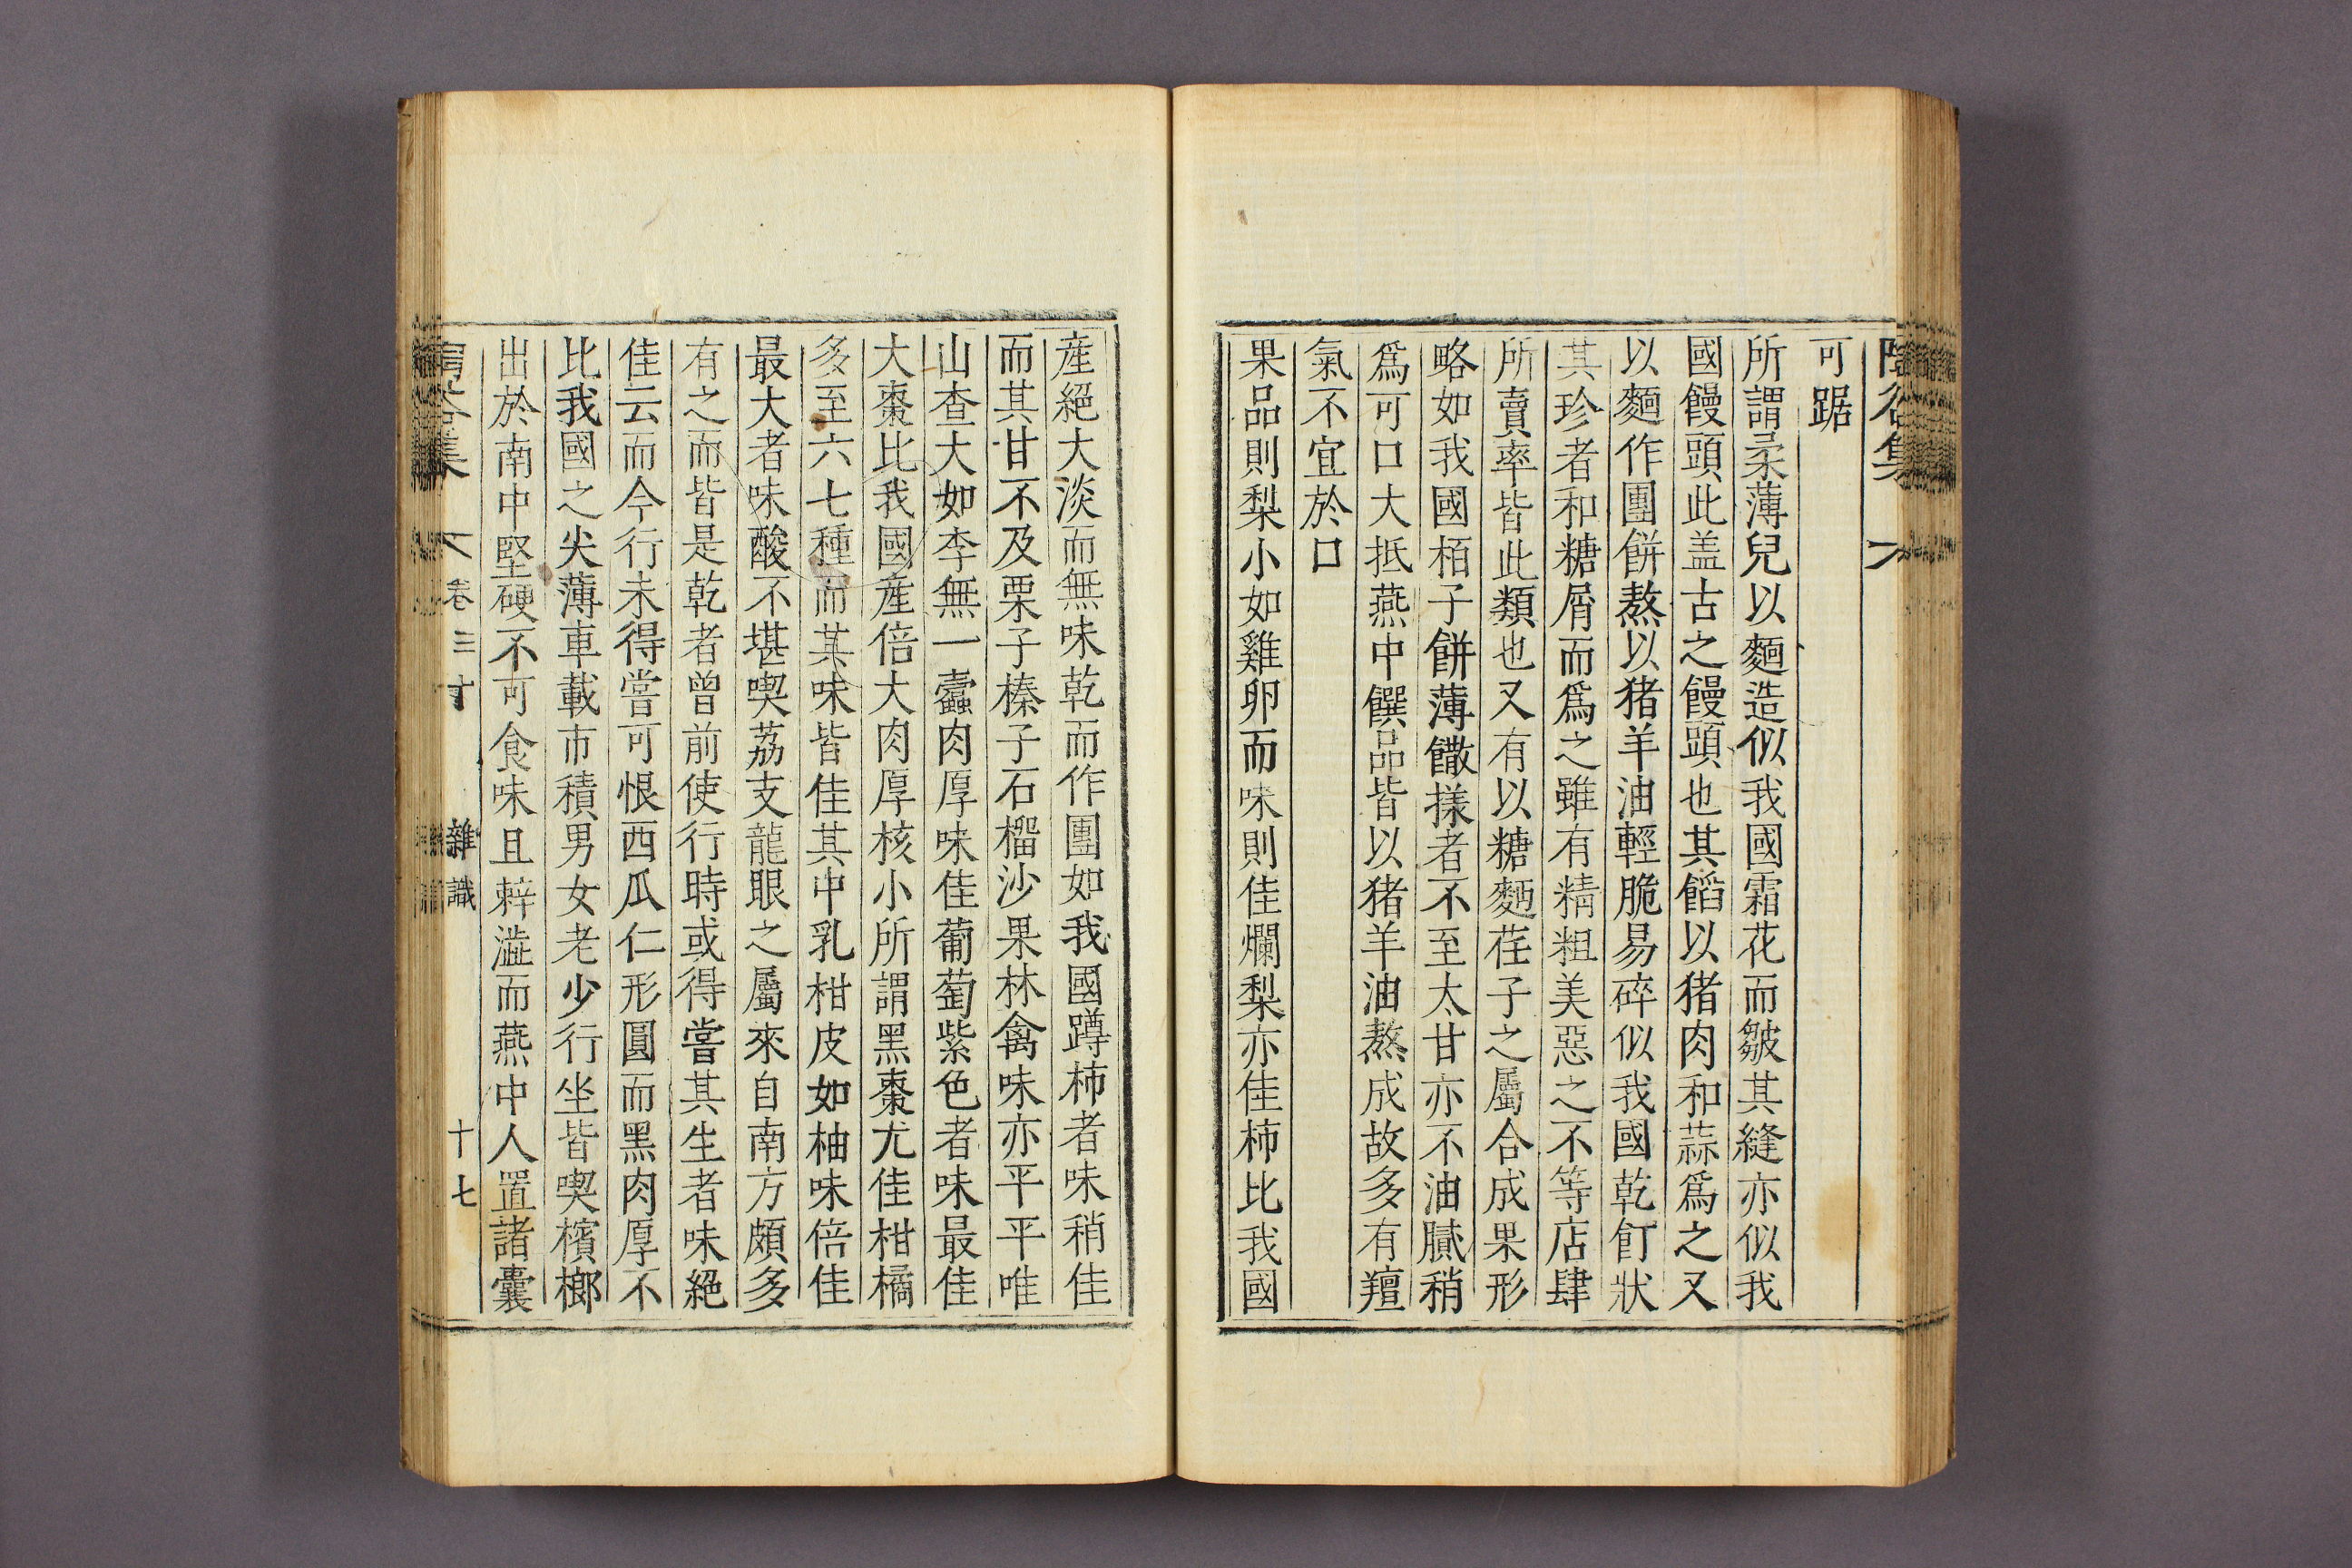 可踞
所謂柔薄兒以麵造似我國霜花而皺其縫亦似我
國饅頭此盖古之饅頭也其饀以猪肉和蒜爲之又
以麵作團餠熬以猪羊油輕脆易碎似我國乾飣狀
其珍者和糖屑而爲之雖有精粗美惡之不等店肆
所賣率皆此類也又有以糖麵荏子之屬合成果形
略如我國栢子餠薄饊㨾者不至太甘亦不油膩稍
爲可口大抵燕中饌品皆以猪羊油熬成故多有羶
氣不宜於口
果品則梨小如雞卵而味則佳爛梨亦佳柿比我國
産絕大淡而無味乾而作團如我國蹲柿者味稍佳
而其甘不及栗子榛子石榴沙果林禽味亦平平唯
山查大如李無一蠹肉厚味佳葡萄紫色者味最佳
大棗比我國産倍大肉厚核小所謂黑棗尤佳柑橘
多至六七種而其味皆佳其中乳柑皮如柚味倍佳
最大者味酸不堪喫荔支龍眼之屬來自南方頗多
有之而皆是乾者曾前使行時或得嘗其生者味絕
佳云而今行未得嘗可恨西瓜仁形圓而黑肉厚不
比我國之尖薄車載市積男女老少行坐皆喫檳榔
出於南中堅硬不可食味且辢澁而燕中人置諸囊
卷三十 雜識 十七